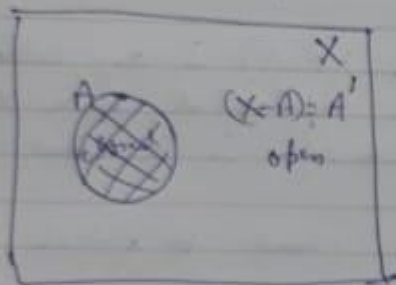 X
A
(X-A)=A'
open